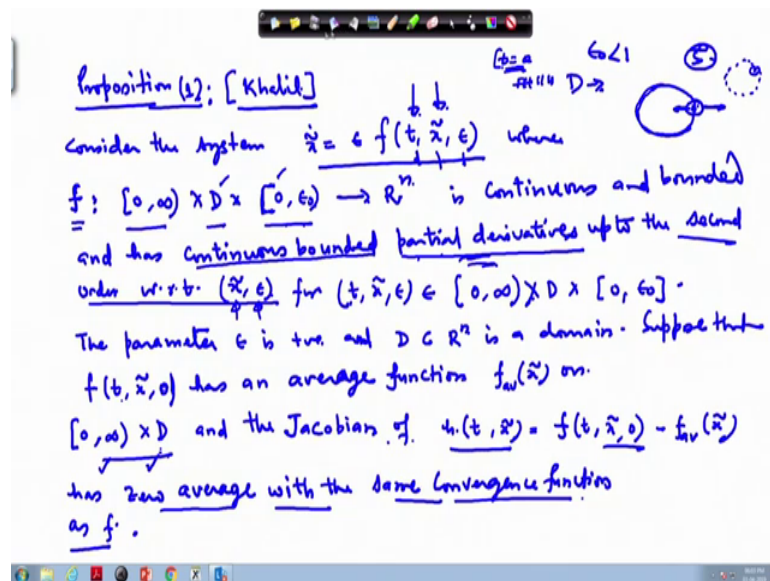 ϵ₀<1 ⑤
D→
Proposition (1): [Khalil]
Consider the system ẋ̃ = ϵ f(t, x̃, ϵ) where
f: [0,∞) × D × [0, ϵ₀) → Rⁿ. is continuous and bounded
and has continuous bounded partial derivatives upto the second
order w.r.t. (x̃, ϵ) for (t, x̃, ϵ) ∈ [0,∞) X D × [0, ϵ₀].
The parameter ϵ is +ve. and D ⊂ Rⁿ is a domain. Suppose that
f(t, x̃, 0) has an average function f_av(x̃) on.
[0,∞) × D and the Jacobian of. h(t, x̃) = f(t, x̃, 0) - f_av(x̃)
has zero average with the same convergence function
as f.